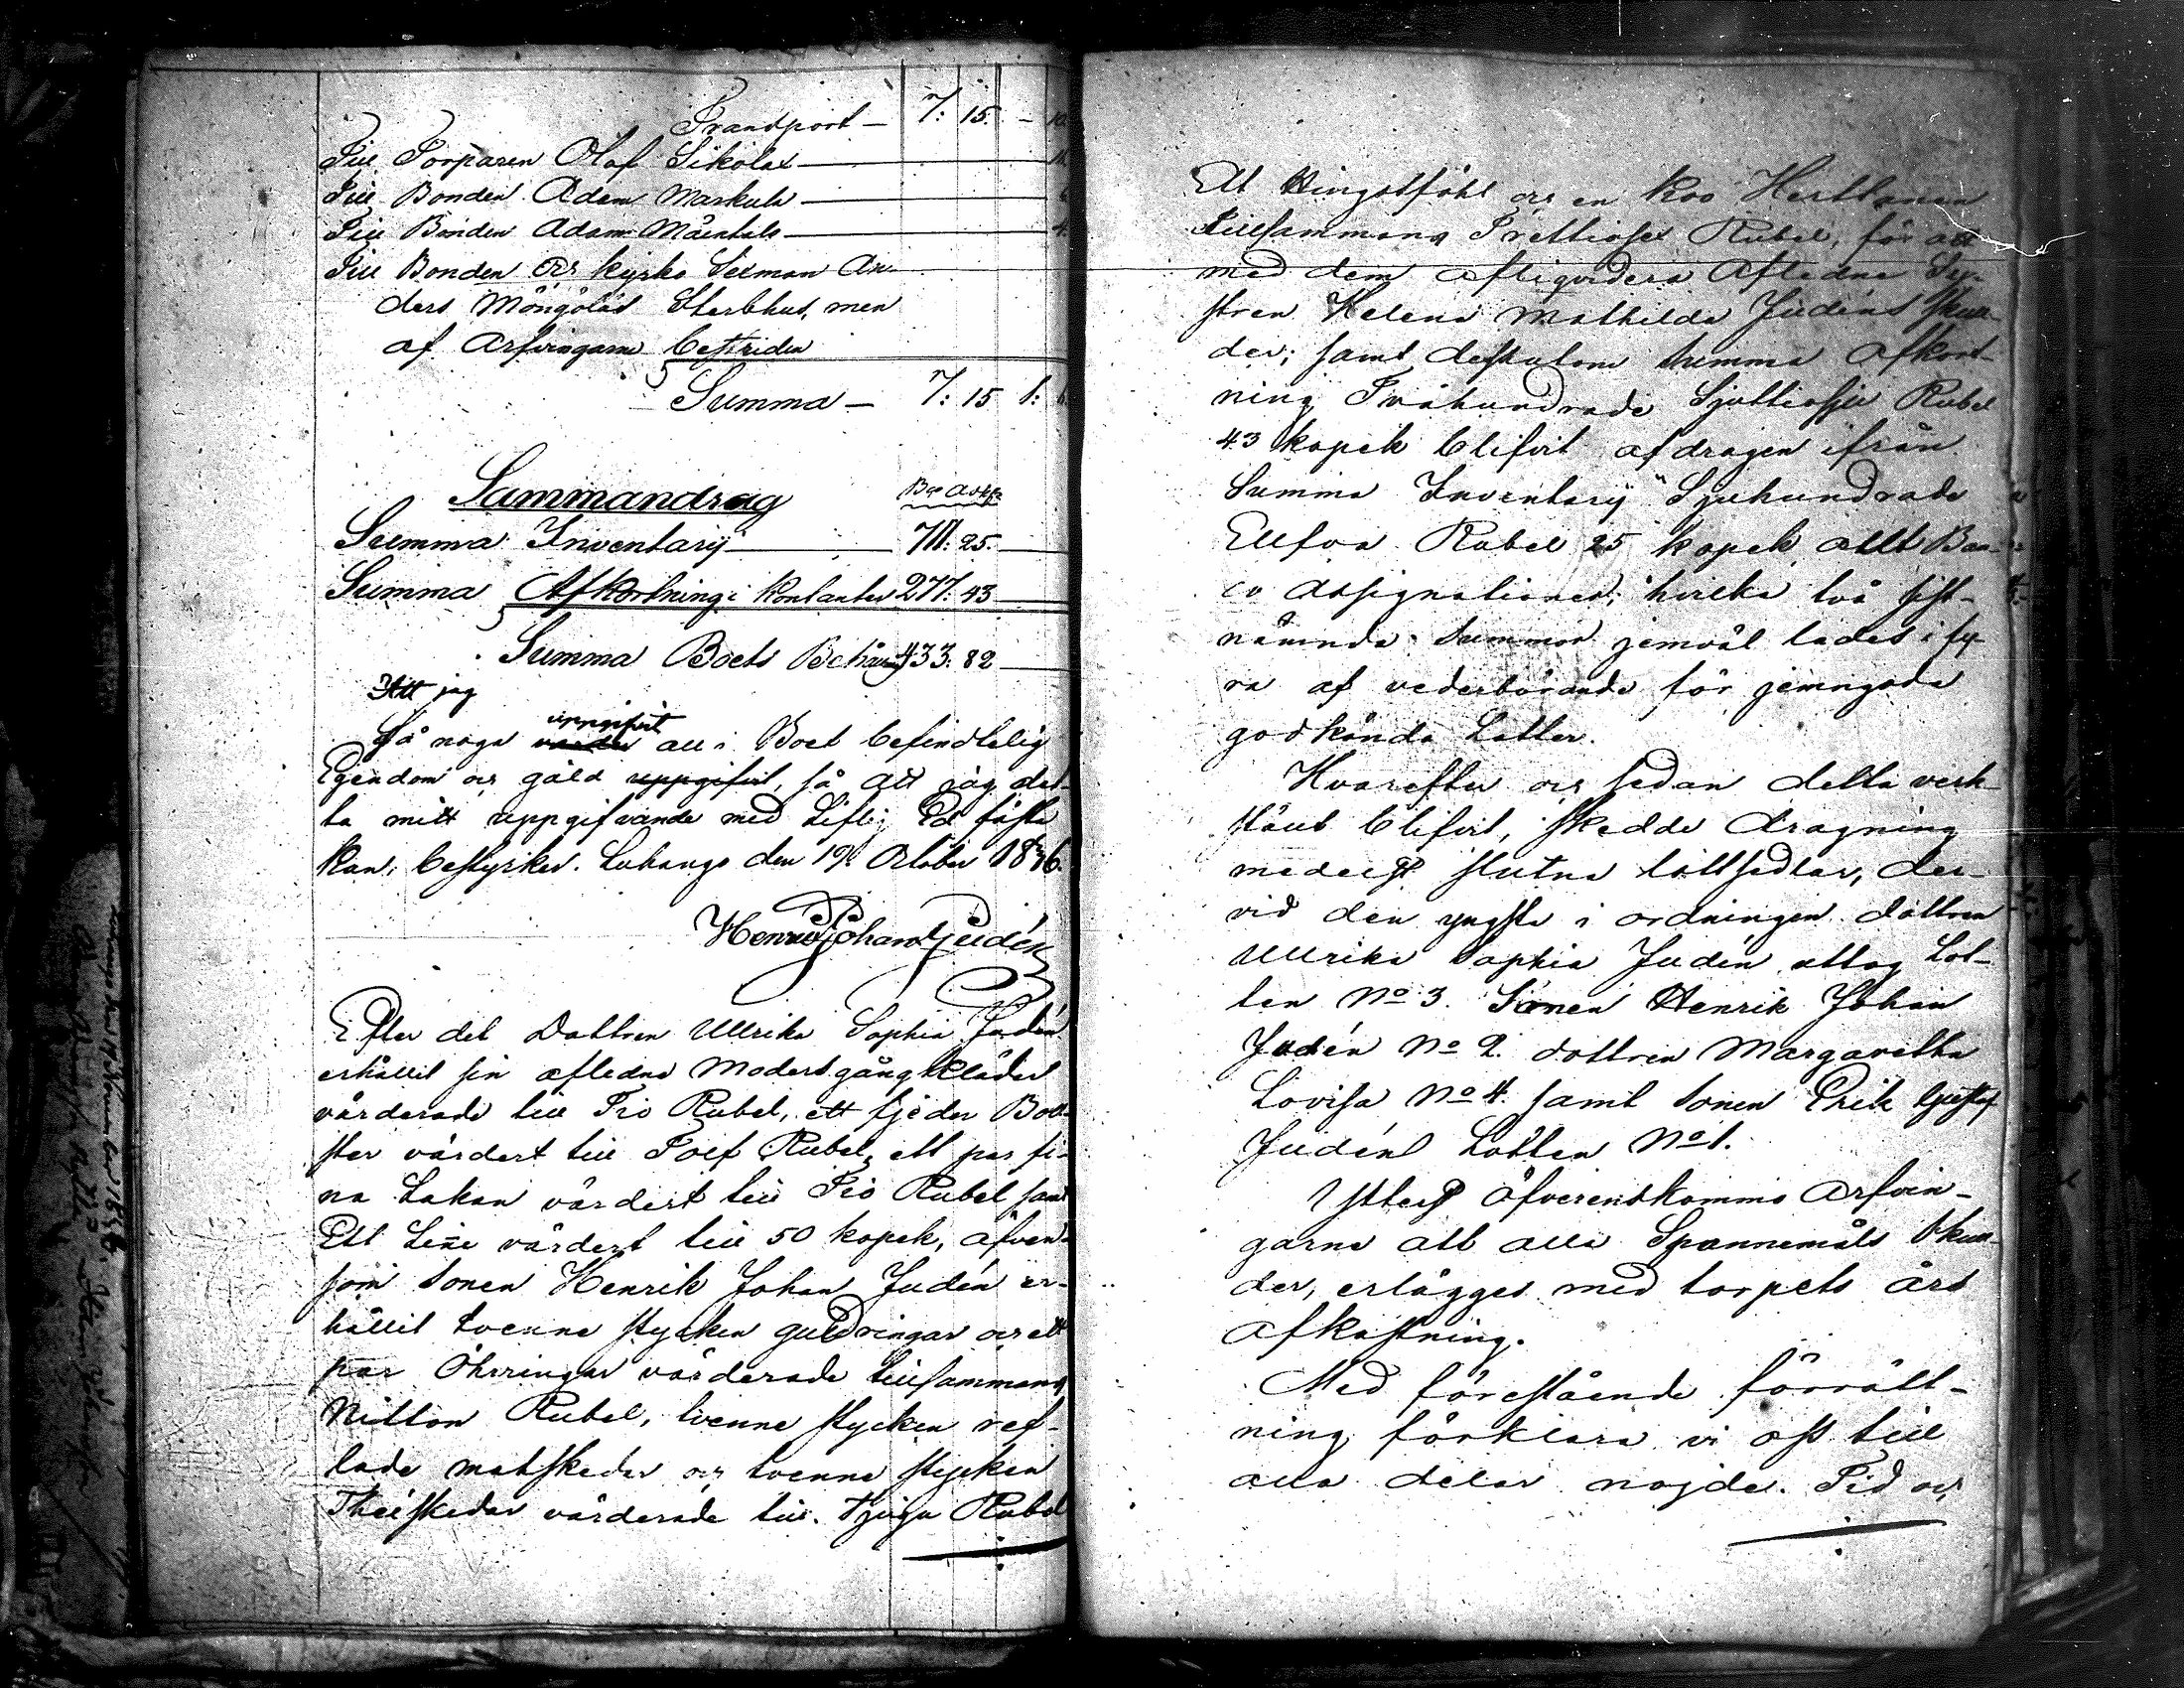 Transport — 7: 15. — 10
Till Torparen Olof Sikolax —
Till Bonden Adam Markula —
Till Bonden Adam Mäentalo — 4.
Till Bonden och kyrko Sexman An-
ders Möngöläs Sterbhus, men
af Arfvingarne bestriden
Summa — 7: 15 1: 6
Sammandrag Bco Ass.
Summa Inventarij — 711: 25.
Summa Afkortning i Kontanter 277: 43
Summa Boets Behåln 433: 82
Att jag
så noga värder uppgifvit all i Boet befindtelig
Egendom och gäld uppgifvit, så att jag det-
ta mitt uppgifvande med Liflig Ed fästa
kan; bestyrker. Luhango den 19de October 1846.
Henric Johan Judén
Efter det Dottren Ullrika Sophia Judén
erhållit sin afledne Moders gångkläder
värderade till Tio Rubel, ett fjeder Bol-
ster värdert till Tolf Rubel, ett par fi-
na Lakan värdert till Tio Rubel samt
Ett Line värdert till 50 kopek, äfven-
som Sonen Henrik Johan Judén er-
hållit tvenne stycken guldringar och ett
par Öhrringar värderade tillsammans
Nitton Rubel, tvenne stycken ref-
lade matskedar och tvenne stycken
Théskedar värderade till Tjugu Rubel
Ett Hingstföhl och en Koo Herttanen
Tillsammans Trettiosex Rubel, för att
med dem afliqvidera Afledne Sy-
stren Helena Mathilda Judéns skul-
der; samt dessutom Summa Afkort-
ning Tvåhundrade Sjuttiosju Rubel
43 kopek blifvit afdragen ifrån
Summa Inventarij Sjuhundrade
Ellfva Rubel 25 kopek allt Ban-
co Assignationer; hvilka två sist-
nämnda Summor jemväl lades i fy-
ra af vederbörande för jemngoda
godkända Lotter.
Hvarefter och sedan detta verk-
stält blifvit, skedde dragning
medelst slutna lottsedlar, der-
vid den yngsta i ordningen dottren
Ullrika Sophia Judén uttog Lot-
ten No 3. Sonen Henrik Johan
Judén No 2. dottren Margaretha
Lovisa No 4. samt Sonen Erik Gustaf
Judén Lotten No 1.
Ytterst öfverenskommo Arfvin-
garne att alla Spannemåls Skul-
der, erlägges med torpets års
Afkastning.
Med förestående förrätt-
ning förklara vi oss till
alla delar nöjde. Tid och